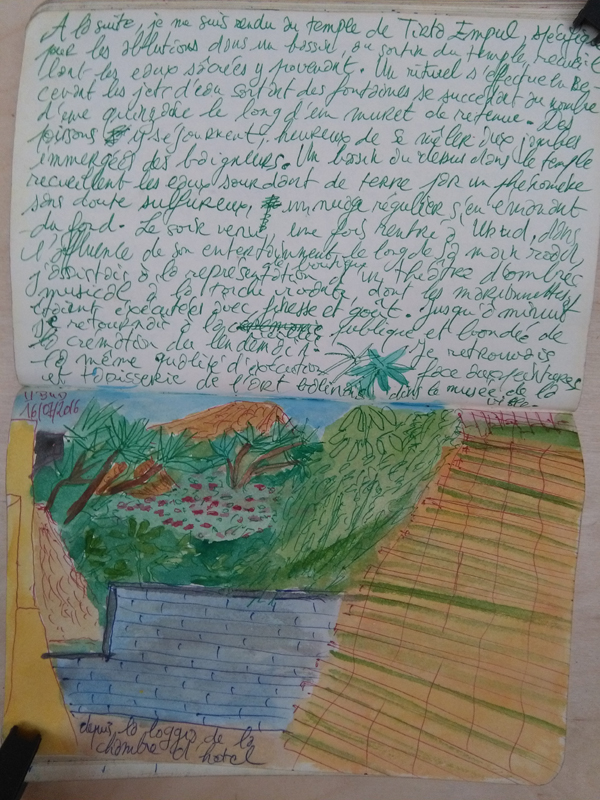 A la suite, je me suis rendu au temple de Tirta Empul, spécifique
pour les ablutions dans un bassin, au sortir du temple, recueil
dont les eaux sacrées y provenant. Un rituel s'effectue en re-
cevant les jets d'eau sortant des fontaines se succédant au nombre
d'une quinzaine le long d'un muret de retenue. Des
poissons y séjournent, heureux de se mêler aux jambes
immergées des baigneurs. Un bassin au dedans le temple
recueillent les eaux sourdant de terre par un phénomène
sans doute sulfureux, un nuage régulier s'en émanant
du fond. Le soir venu, une fois rentré à Ubud, dans
l'affluence de son entertainment le long de la main road,
j'assistais à la représentation d'un théâtre d'ombres
musical à la torche vivante, dont les marionnettes
étaient exécutées avec finesse et goût. Jusqu'à minuit
je retournais à la publique et bondée de
la crémation du lendemain. Je retrouvais
la même qualité d'exécution face aux peintures
et tapisserie de l'ART balinais dans le musée de la
Ubud
16/07/2016
depuis la loggia de la
chambre d'hotel